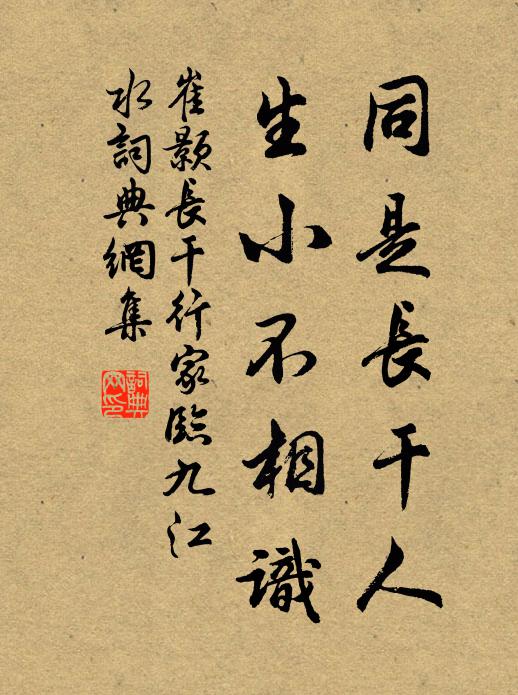 同是長干人
生小不相識
崔顥長干行家臨九江
水詞典網集
詞典
网印